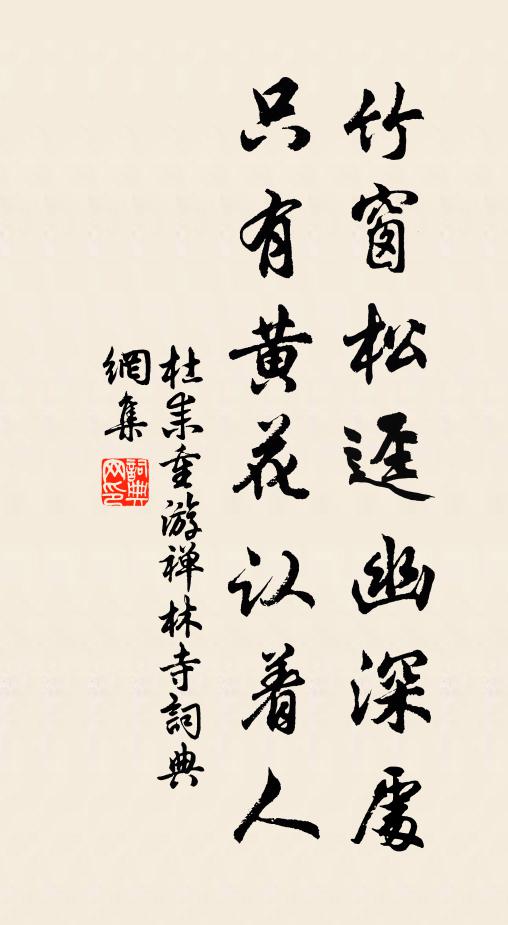 竹窗松逕幽深處
只有黄花认着人
杜耒重游禅林寺詞典
網集
詞典网印